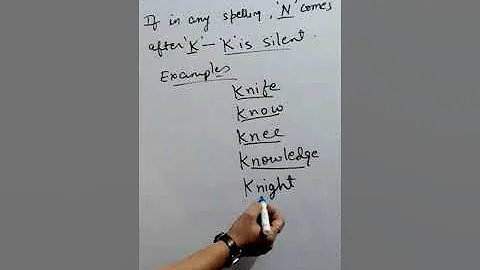 If in any spelling, 'N' comes
after 'K' – 'K' is silent.
Examples
Knife
Know
Knee
Knowledge
Knight